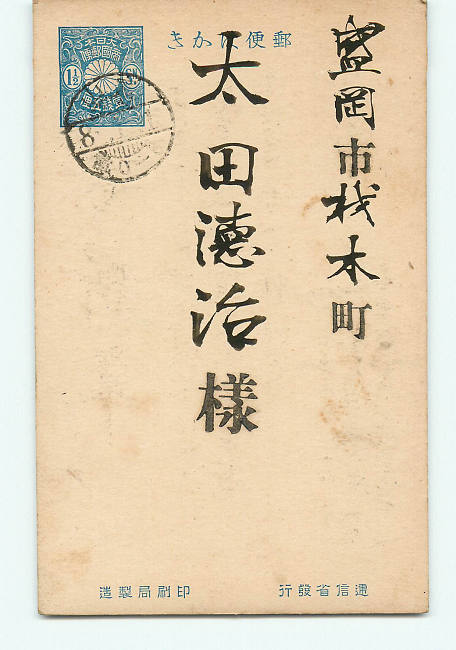 郵便はかき
大日本
帝國郵便
1½
Sn.
壹錢五厘
盛岡市材木町
太田徳治様
遞信省發行
印刷局製造